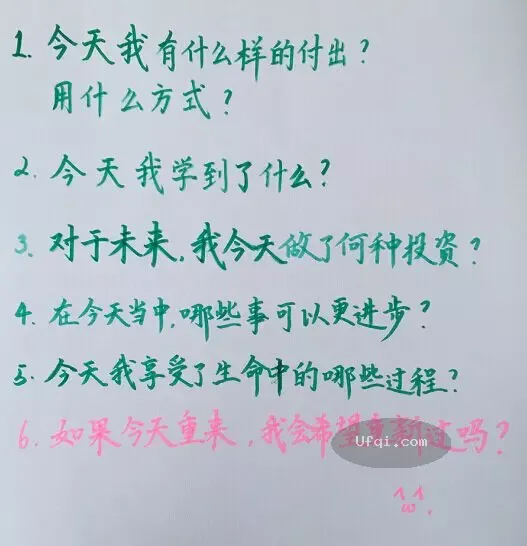 1. 今天我有什么样的付出？
用什么方式？
2. 今天我学到了什么？
3. 对于未来，我今天做了何种投资？
4. 在今天当中，哪些事可以更进步？
5. 今天我享受了生命中的哪些过程？
6. 如果今天重来，我会希望重新过吗？
Ufqi.com